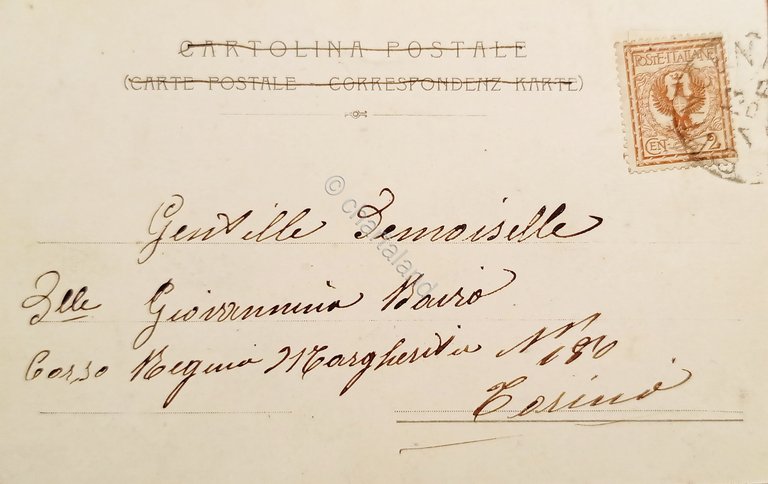 CARTOLINA POSTALE
(CARTE POSTALE - CORRESPONDENZ KARTE)
POSTE ITALIANE
CEN 2
© chartaland
Gentille Demoiselle
Giovannina
Corso Regina Margherita No 180
Torino